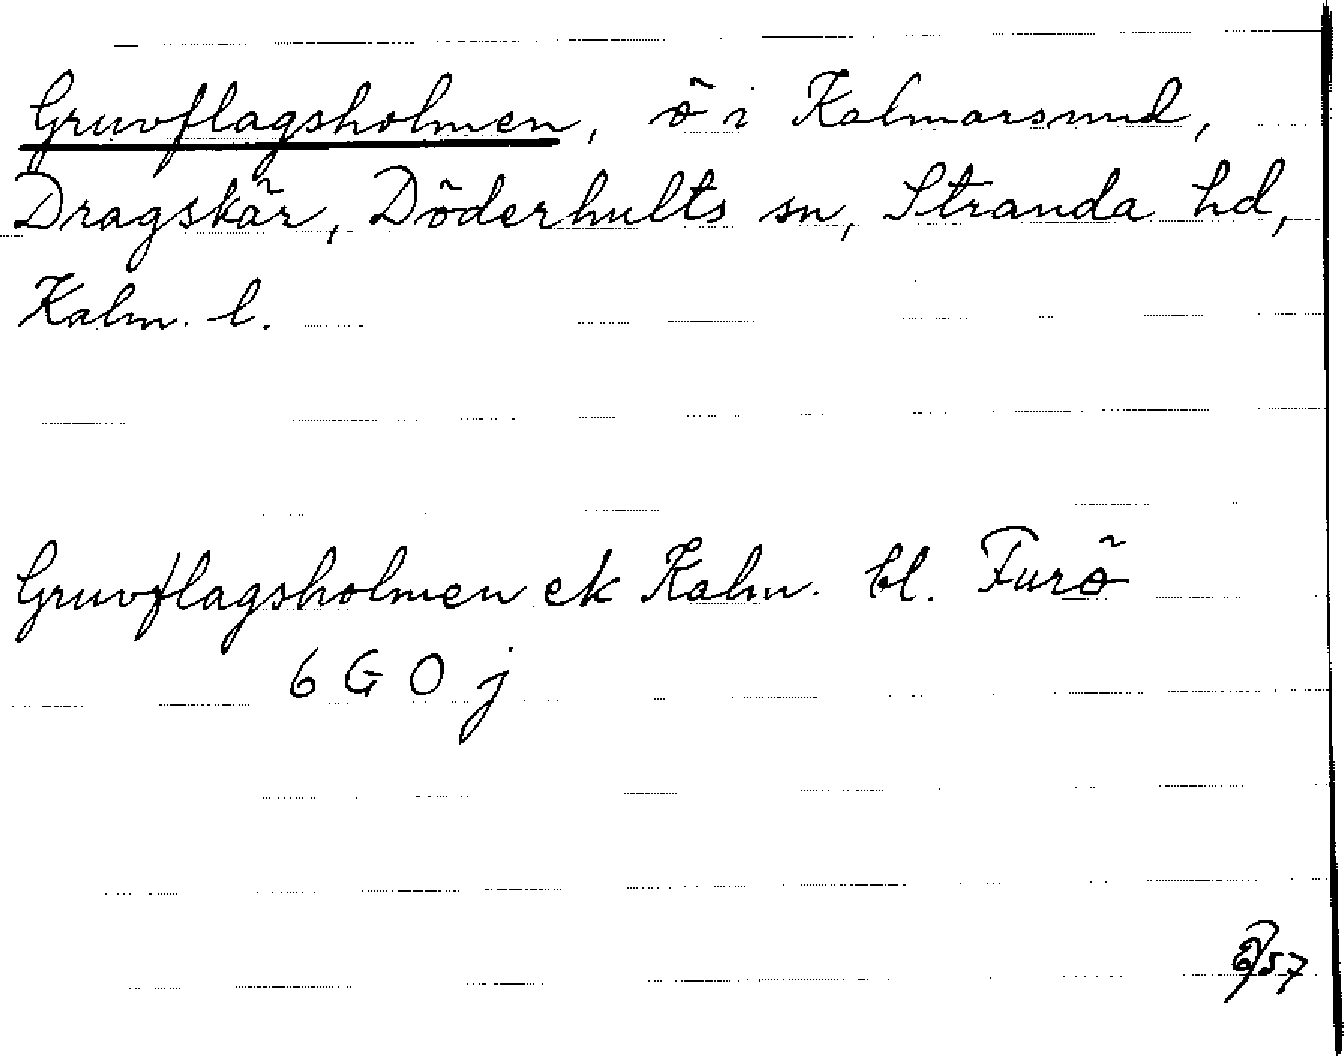 Gruvflagsholmen, ö i Kalmarsund,
Dragskär, Döderhults sn, Stranda hd,
Kalm. l.
Gruvflagsholmen ek Kalm. bl. Furö
6 G O j
57